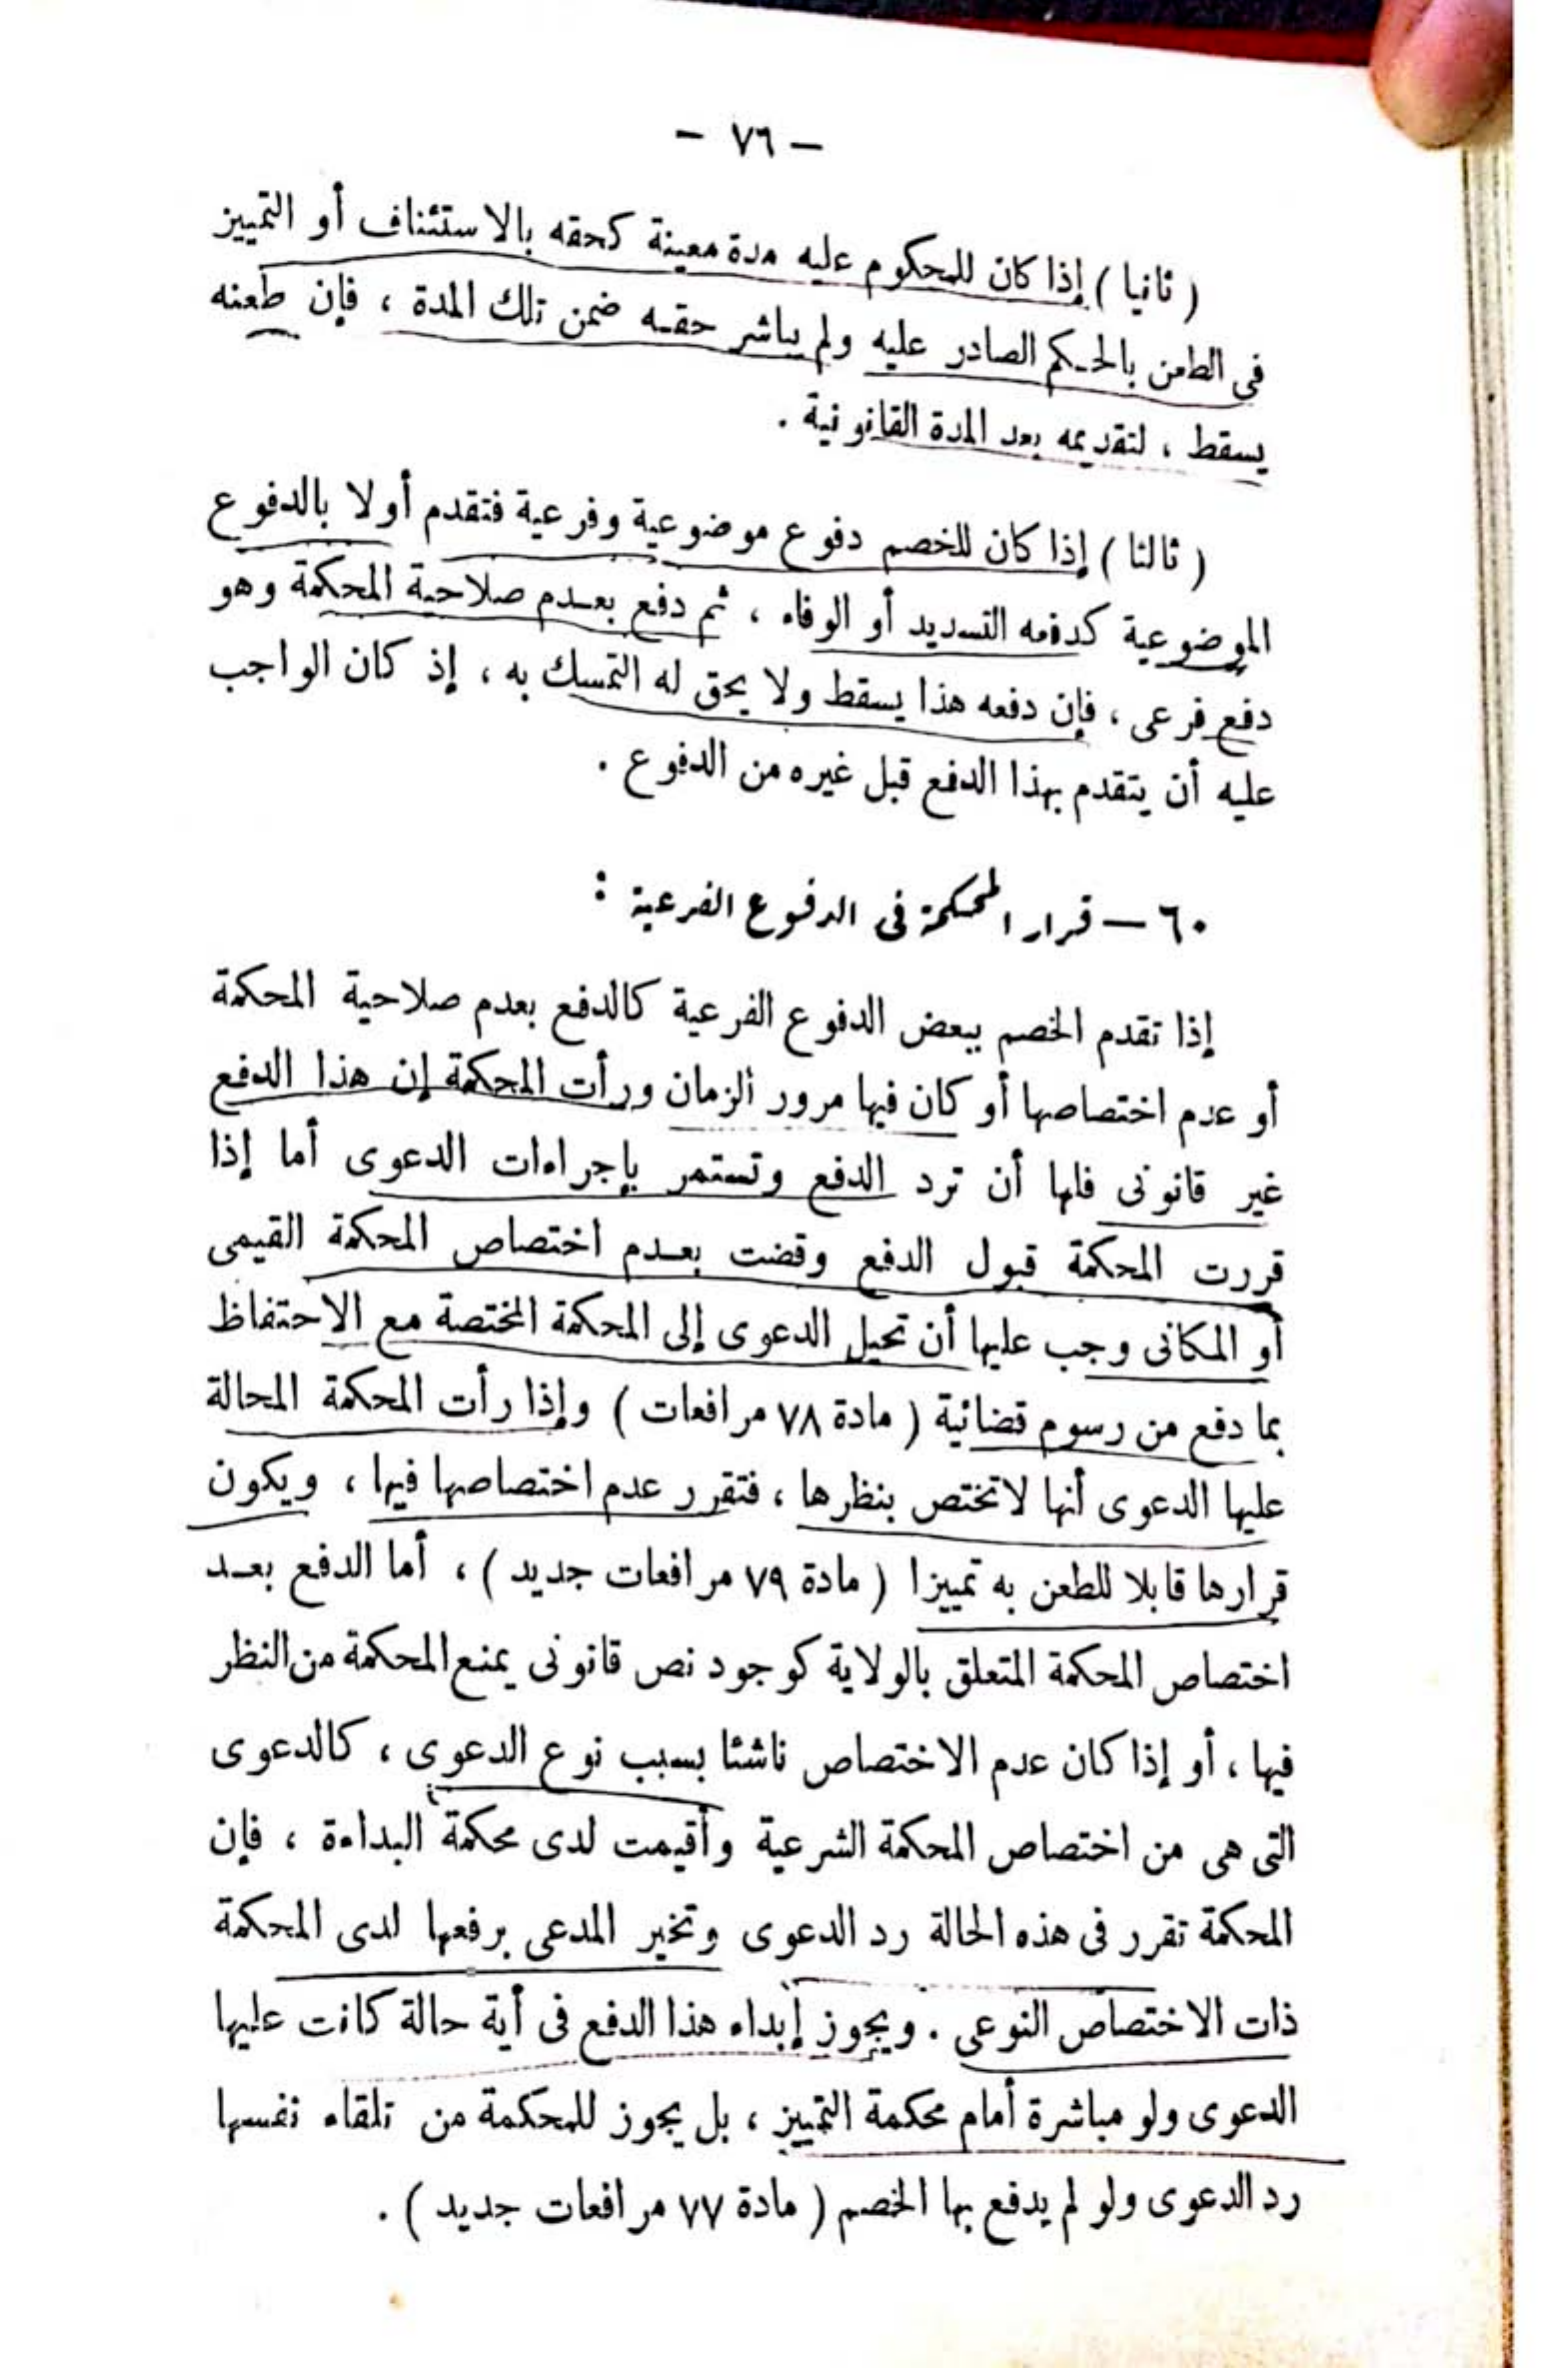 — ٧٦ —
( ثانيا ) إذا كان للمحكوم عليه مدة معينة كحقه بالاستئناف أو التمييز
فى الطعن بالحكم الصادر عليه ولم يباشر حقه ضمن تلك المدة ، فإن طعنه
يسقط ، لتقديمه بعد المدة القانونية .
( ثالثا ) إذا كان للخصم دفوع موضوعية وفرعية فتقدم أولا بالدفوع
الموضوعية كدفعه التسديد أو الوفاء ، ثم دفع بعدم صلاحية المحكمة وهو
دفع فرعى ، فإن دفعه هذا يسقط ولا يحق له التمسك به ، إذ كان الواجب
عليه أن يتقدم بهذا الدفع قبل غيره من الدفوع .
٦٠ — قرار المحكمة فى الدفوع الفرعية :
إذا تقدم الخصم ببعض الدفوع الفرعية كالدفع بعدم صلاحية المحكمة
أو عدم اختصاصها أو كان فيها مرور الزمان ورأت المحكمة إن هذا الدفع
غير قانونى فلها أن ترد الدفع وتستمر بإجراءات الدعوى أما إذا
قررت المحكمة قبول الدفع وقضت بعدم اختصاص المحكمة القيمى
أو المكانى وجب عليها أن تحيل الدعوى إلى المحكمة المختصة مع الاحتفاظ
بما دفع من رسوم قضائية ( مادة ٧٨ مرافعات ) وإذا رأت المحكمة المحالة
عليها الدعوى أنها لا تختص بنظرها ، فتقرر عدم اختصاصها فيها ، ويكون
قرارها قابلا للطعن به تمييزا ( مادة ٧٩ مرافعات جديد ) ، أما الدفع بعد
اختصاص المحكمة المتعلق بالولاية كوجود نص قانونى يمنع المحكمة من النظر
فيها ، أو إذا كان عدم الاختصاص ناشئا بسبب نوع الدعوى ، كالدعوى
التى هى من اختصاص المحكمة الشرعية وأقيمت لدى محكمة البداءة ، فإن
المحكمة تقرر فى هذه الحالة رد الدعوى وتخير المدعى برفعها لدى المحكمة
ذات الاختصاص النوعى . ويجوز إبداء هذا الدفع فى أية حالة كانت عليها
الدعوى ولو مباشرة أمام محكمة التمييز ، بل يجوز للمحكمة من تلقاء نفسها
رد الدعوى ولو لم يدفع بها الخصم ( مادة ٧٧ مرافعات جديد ) .